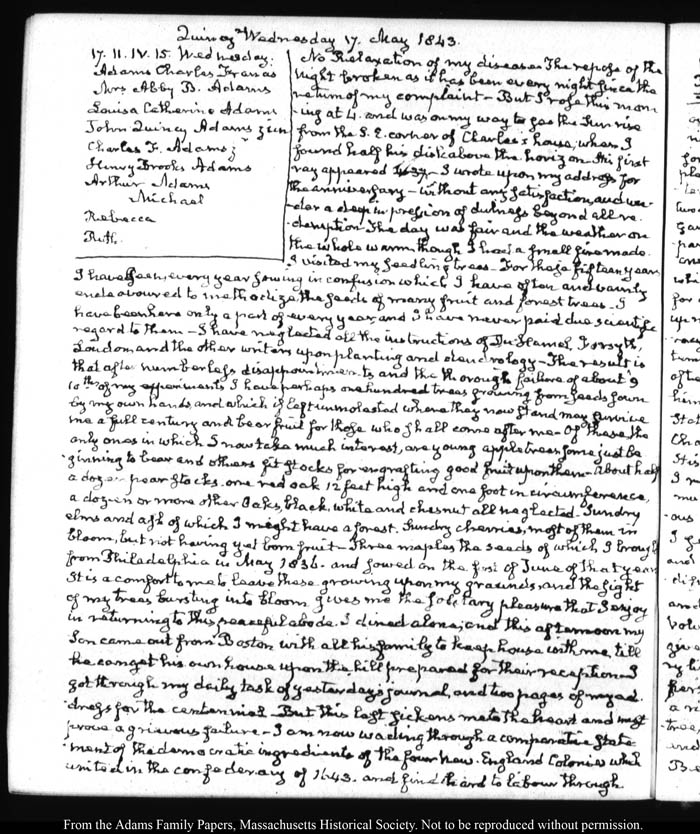 Quincy Wednesday 17. May 1843.
17. II. IV. 15. Wednesday.
Adams Charles Francis
Mrs Abby B. Adams
Louisa Catherine Adams
John Quincy Adams jun
Charles F. Adams j
Henry Brooks Adams
Arthur Adams
Michael
Rebecca
Ruth.
No Relaxation of my disease. The repose of the
night broken as it has been every night since the
return of my complaint — But I rose this morn-
ing at 4. and was on my way to see the Sun rise
from the S. E. corner of Charles's house, when I
found half his disk above the horizon. His first
ray appeared 4.37 — I wrote upon my address for
the anniversary — without any satisfaction, and un-
der a deep impression of dulness beyond all re-
demption. The day was fair and the weather on
the whole warm though I had a small fire made.
I visited my seedling trees — For these fifteen years
I have been, every year sowing in confusion which I have often and vainly
endeavoured to methodize, the seeds of many fruit and forest trees. I
have been here only a part of every year, and I have never paid due scientific
regard to them — I have neglected all the instructions of Du Hamel, Forsyth,
Loudon, and the other writers upon planting and dendrology — The result is
that after numberless disappointments and the thorough failure of about 9
10ths of my experiments I have perhaps one hundred trees growing from seeds sown
by my own hands, and which if left unmolested where they now stand may survive
me a full century and bear fruit for those who shall come after me — Of these the
only ones in which I now take much interest, are young apple trees some just be-
ginning to bear and others fit stocks for engrafting good fruit upon them — About half
a dozen pear stocks, one red oak 12 feet high and one foot in circumference,
a dozen or more other Oaks, black, white and chesnut all neglected. Sundry
elms and ash of which I might have a forest. Sundry cherries, most of them in
bloom, but not having yet born fruit — Three maples the seeds of which I brought
from Philadelphia in May 1836. and sowed on the first of June of that year
It is a comfort to me to leave these growing upon my grounds, and the sight
of my trees bursting into bloom gives me the solitary pleasure that I enjoy
in returning to this peaceful abode. I dined alone, and this afternoon my
Son came out from Boston with all his family to keep house with me, till
he can get his own house upon the hill prepared for their reception — I
got through my daily task of yesterday's journal, and two pages of my ad-
dress for the centennial — But this last sickens me to the heart and must
prove a grievous failure — I am now wading through a comparative state-
ment of the democratic ingredients of the four New England Colonies which
united in the confederacy of 1643. and find it hard to labour through
From the Adams Family Papers, Massachusetts Historical Society. Not to be reproduced without permission.